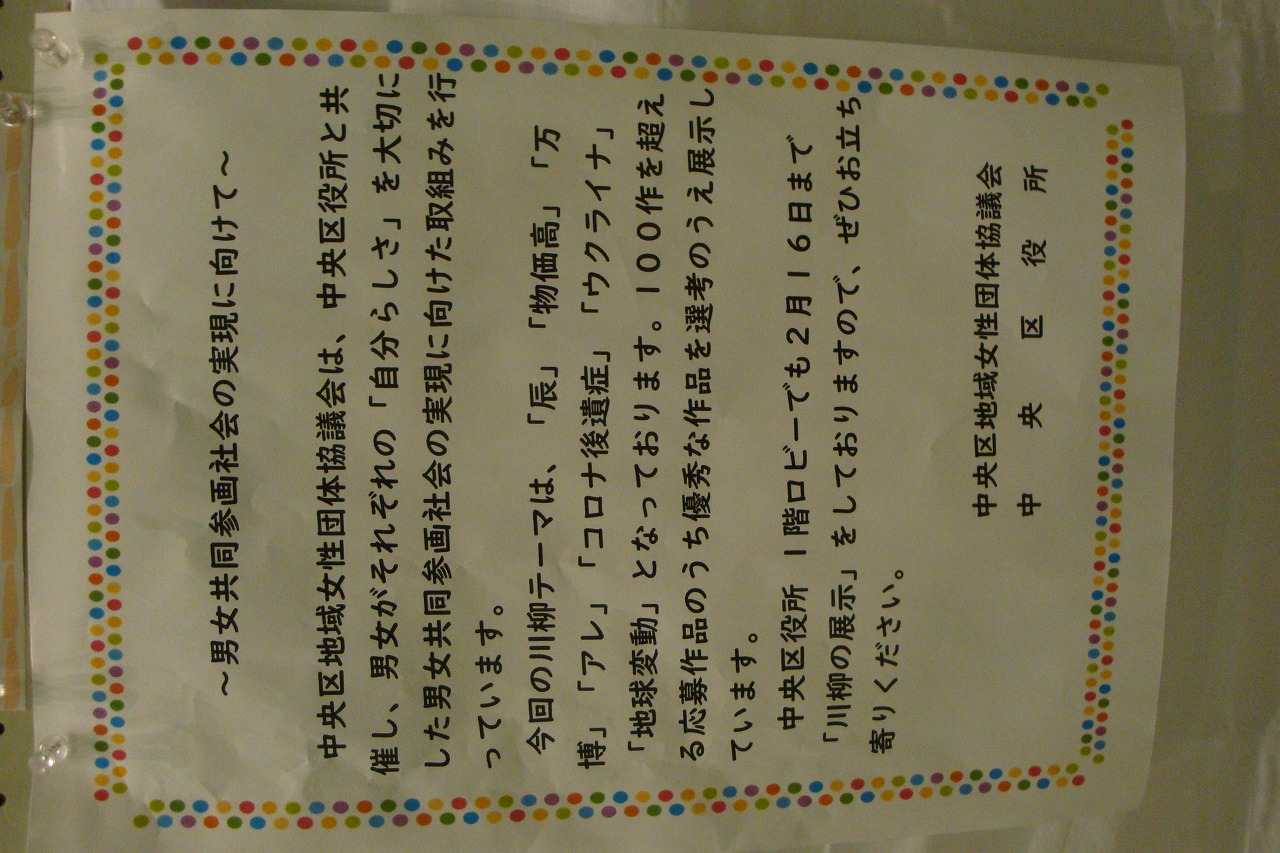 ～男女共同参画社会の実現に向けて～
中央区地域女性団体協議会は、中央区役所と共
催し、男女がそれぞれの「自分らしさ」を大切に
した男女共同参画社会の実現に向けた取組みを行
っています。
今回の川柳テーマは、「辰」「物価高」「万
博」「アレ」「コロナ後遺症」「ウクライナ」
「地球変動」となっております。１００作を超え
る応募作品のうち優秀な作品を選考のうえ展示し
ています。
中央区役所　１階ロビーでも２月１６日まで
「川柳の展示」をしておりますので、ぜひお立ち
寄りください。
中央区地域女性団体協議会
中　央　区　役　所